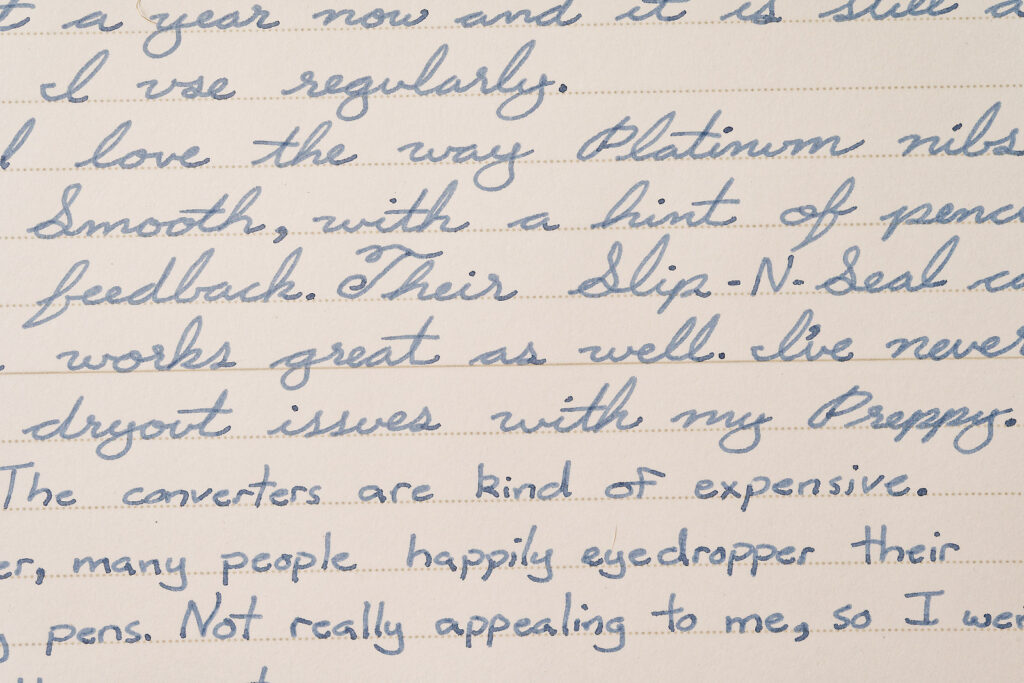 a year now and it is still a
I use regularly.
I love the way Platinum nibs
Smooth, with a hint of penc
feedback. Their Slip-N-Seal ca
works great as well. I've never
dryout issues with my Preppy.
The converters are kind of expensive.
er, many people happily eyedropper their
pens. Not really appealing to me, so I wen